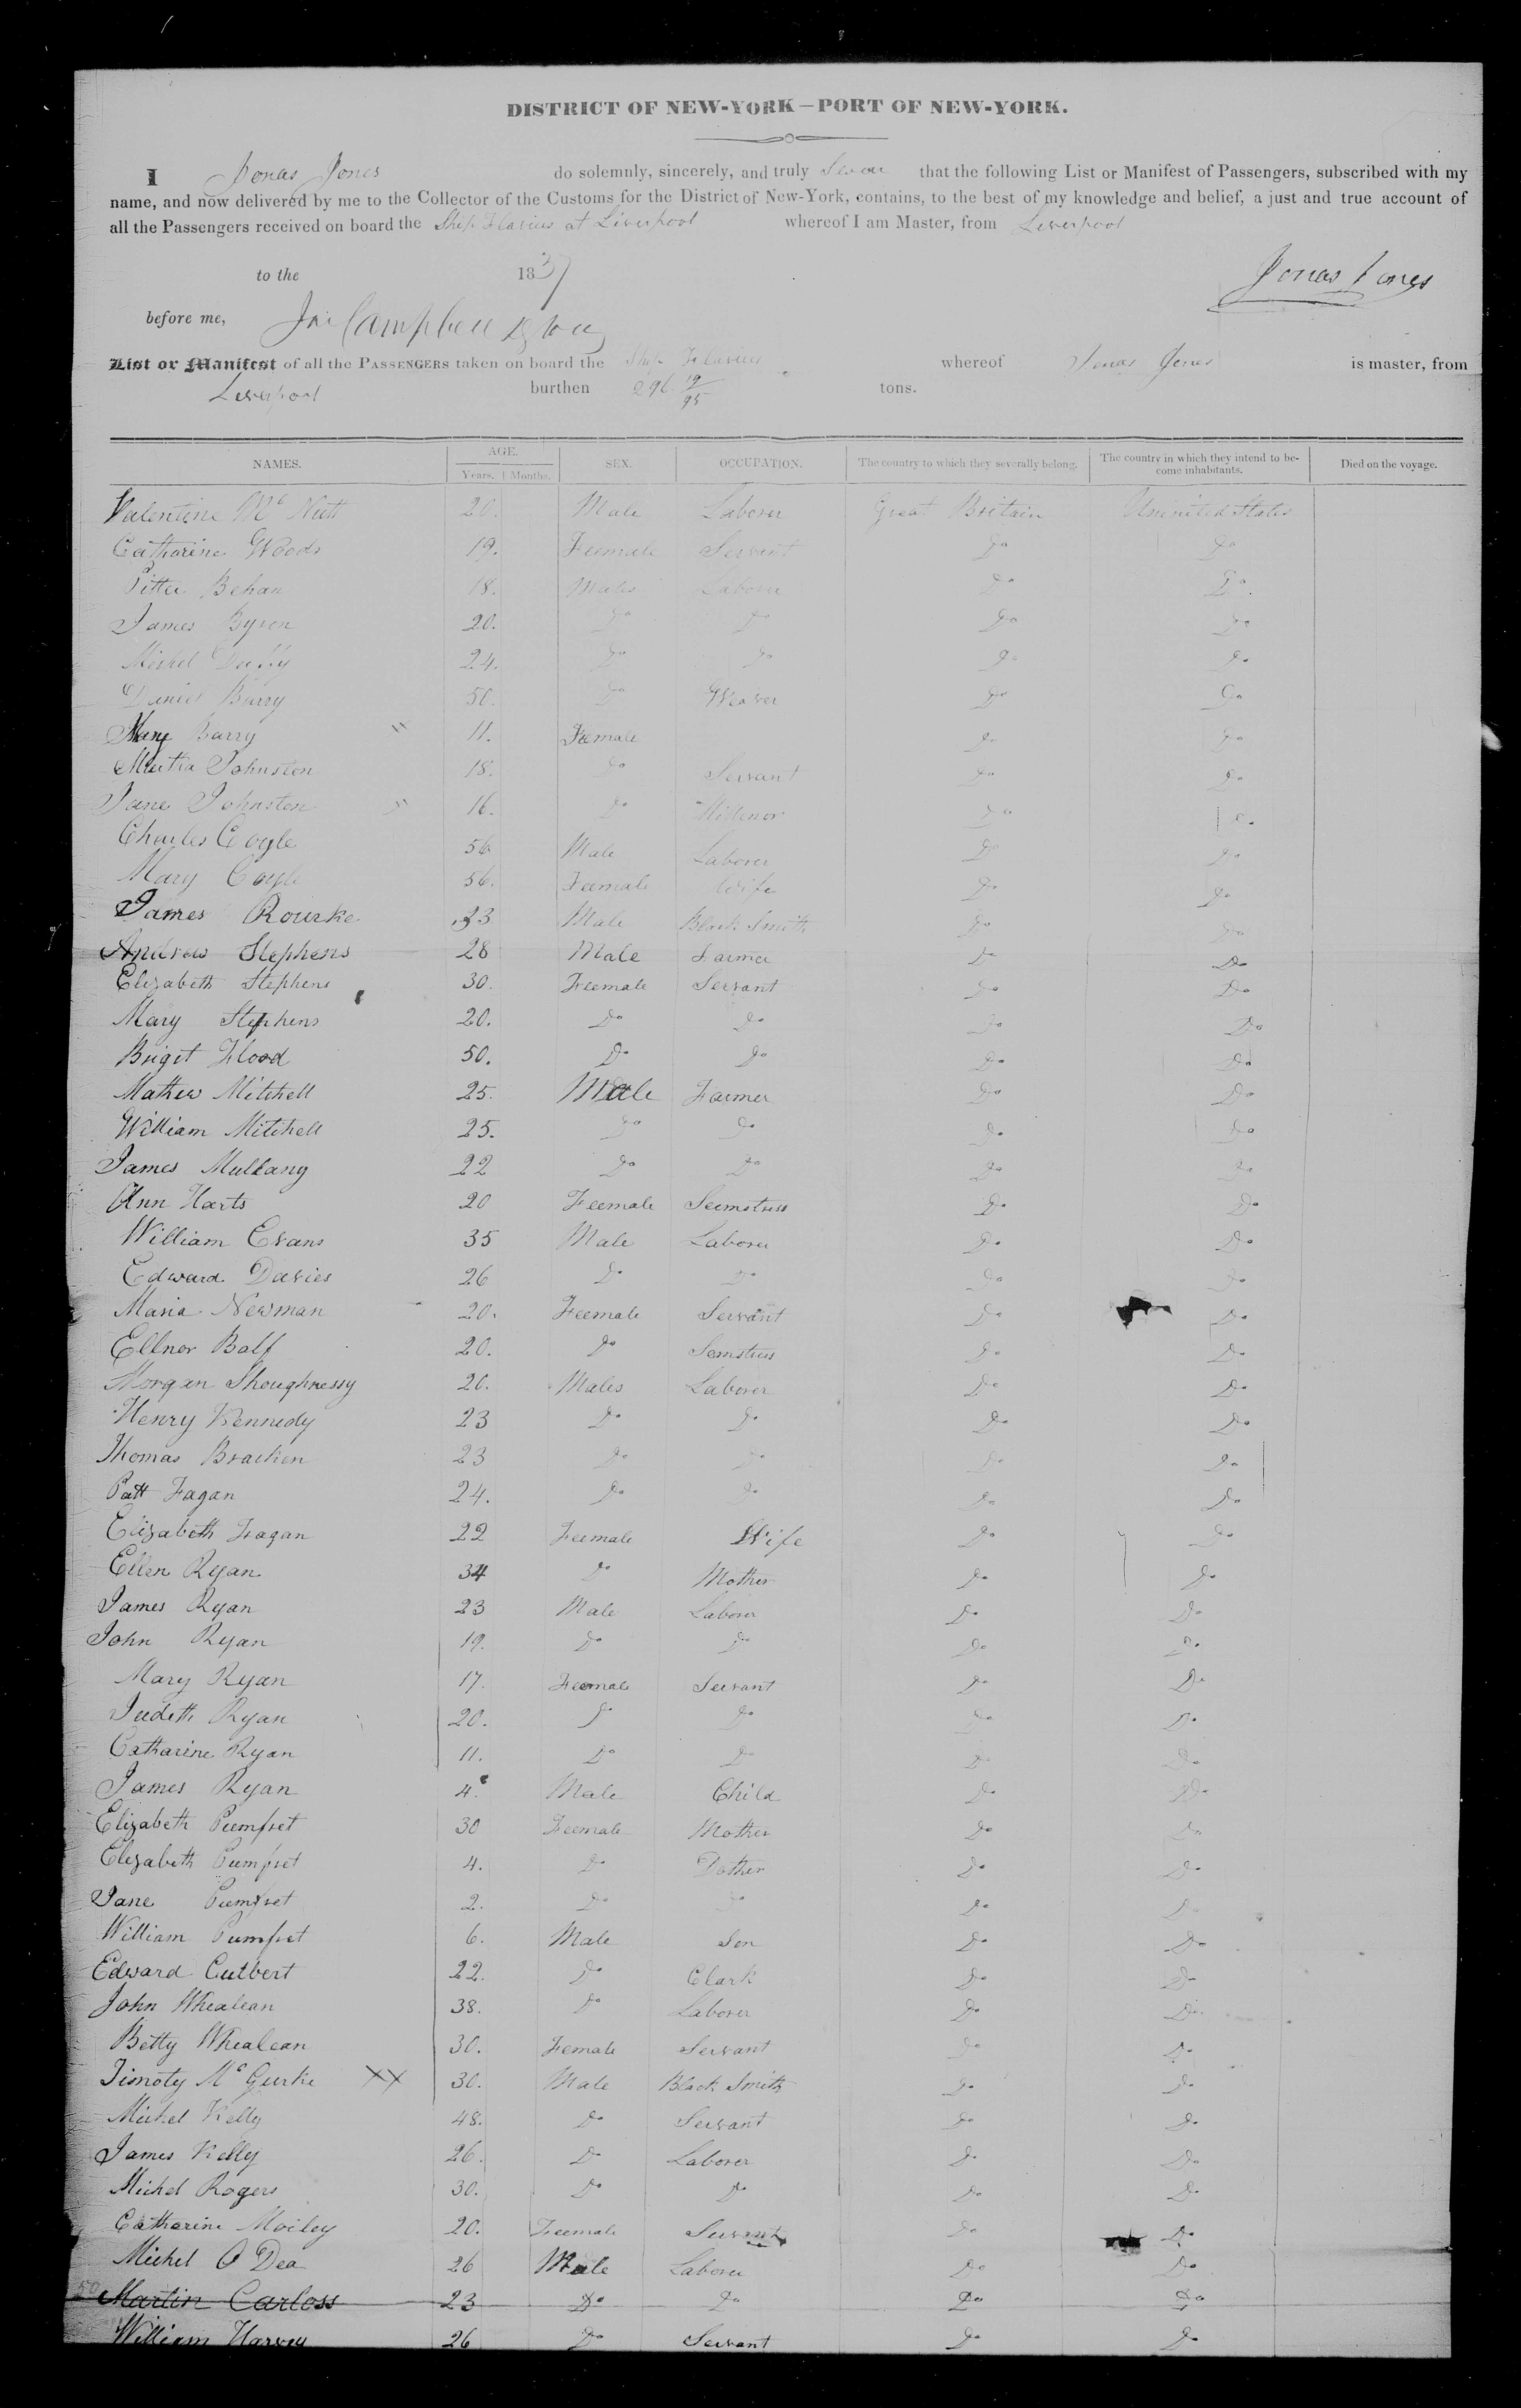 DISTRICT OF NEW-YORK—PORT OF NEW-YORK.
I Jonas Jones do solemnly, sincerely, and truly Swear that the following List or Manifest of Passengers, subscribed with my
name, and now delivered by me to the Collector of the Customs for the District of New-York, contains, to the best of my knowledge and belief, a just and true account of
all the Passengers received on board the Ship Flavius at Liverpool whereof I am Master, from Liverpool
to the 1837 Jonas Jones
before me, Campbell
List or Manifest of all the PASSENGERS taken on board the Ship Flavius whereof Jonas Jones is master, from
Liverpool burthen 296 19/95 tons.
NAMES. AGE. Years. Months. SEX. OCCUPATION. The country to which they severally belong. The country in which they intend to become inhabitants. Died on the voyage.
Valentine Mc Nutt 20. Male Laborer Great Britain Ununited States
Catharine Woods 19. Feemale Servant Do Do
Pitter Behan 18. Males Laborer Do Do
James Byron 20. Do Do Do Do
Michel Duffy 24. Do Do Do Do
Daniel Barry 50. Do Weaver Do Do
Mary Barry " 11. Feemale Do Do
Johnston 18. Do Servant Do Do
Jane Johnston " 16. Do Millenor Do Do
Charles Cogle 56 Male Laborer Do Do
Mary Cogle 56. Feemale Wife Do Do
James Rourke 23 Male Black Smith Do Do
Andrew Stephens 28 Male Farmer Do Do
Elizabeth Stephens 30. Feemale Servant Do Do
Mary Stephens 20. Do Do Do Do
Briget Flood 50. Do Do Do Do
Mathew Mitchell 25. Male Farmer Do Do
William Mitchell 25. Do Do Do Do
James Mullany 22 Do Do Do Do
Ann Harts 20 Feemale Seemstress Do Do
William Evans 35 Male Laborer Do Do
Edward Davies 26 Do Do Do Do
Maria Newman 20. Feemale Servant Do Do
Ellnor Balf 20. Do Semstress Do Do
Morgan Shoughnessy 20. Males Laborer Do Do
Henry Kennedy 23 Do Do Do Do
Thomas Bracken 23 Do Do Do Do
Patt Fagan 24. Do Do Do Do
Elizabeth Fagan 22 Feemale Wife Do Do
Ellen Ryan 34 Do Mother Do Do
James Ryan 23 Male Laborer Do Do
John Ryan 19. Do Do Do Do
Mary Ryan 17. Feemale Servant Do Do
Judeth Ryan 20. Do Do Do Do
Catharine Ryan 11. Do Do Do Do
James Ryan 4. Male Child Do Do
Elizabeth Pumfret 30 Feemale Mother Do Do
Elezabeth Pumfret 4. Do Dother Do Do
Jane Pumfret 2. Do Do Do Do
William Pumfret 6. Male Son Do Do
Edward Cutbert 22. Do Clark Do Do
John Whealean 38. Do Laborer Do Do
Betty Whealean 30. Female Servant Do Do
Timoty Mc Gurke XX 30. Male Black Smith Do Do
Michel Kelly 48. Do Servant Do Do
James Kelly 26. Do Laborer Do Do
Michel Rogers 30. Do Do Do Do
Catharine Moiley 20. Feemale Servant Do Do
Michel O Dea 26 Male Laborer Do Do
50 Martin Carloss 23 Do Do Do Do
William Harvey 26 Do Servant Do Do